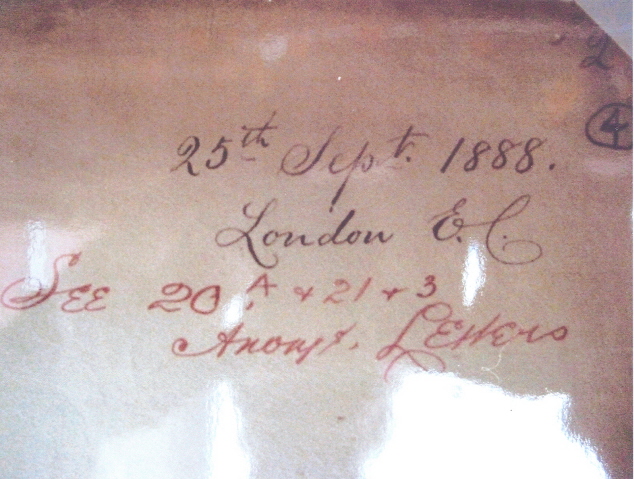 2
4
25th Sept. 1888.
London E.C.
SEE 20 A & 21 & 3
Anonyt. LEtters